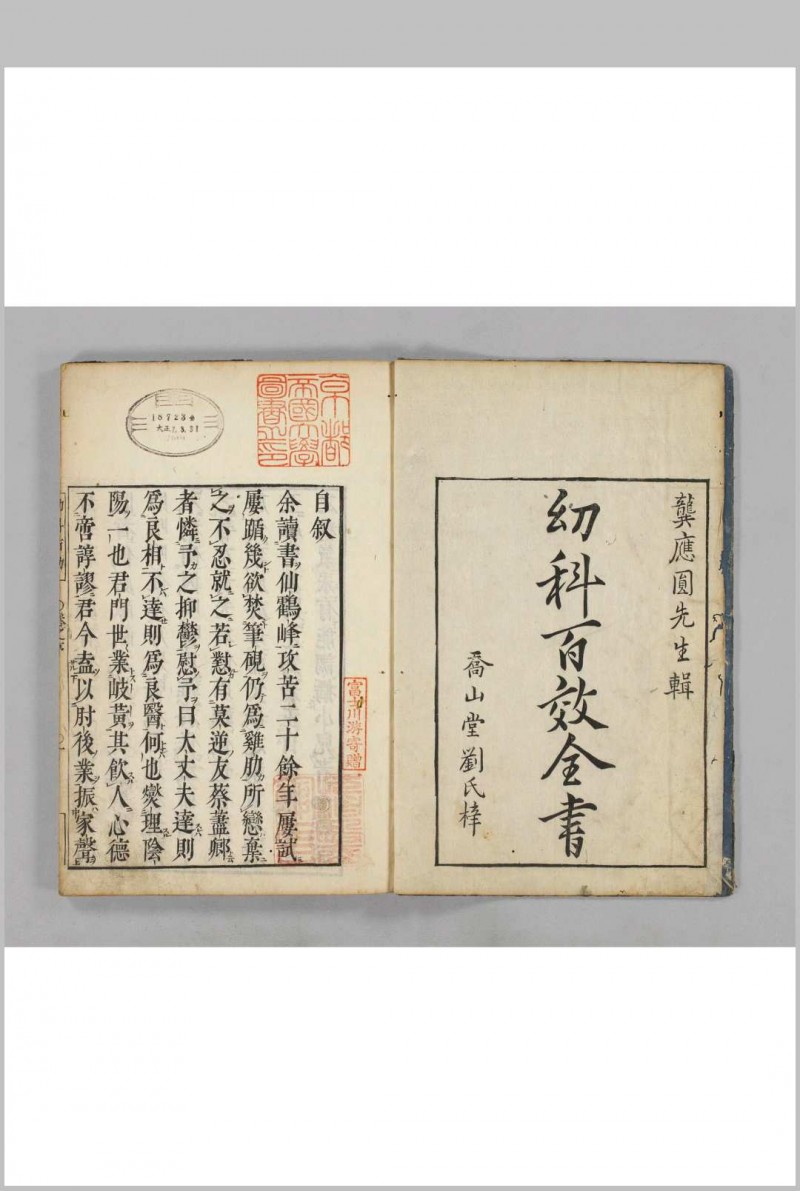 龔應圓先生輯
幼科百效全書
喬山堂劉氏梓
京都
帝國大學
圖書之印
187234
大正7.3.31
富士川游寄贈
自叙
余讀書仙鶴峰攻苦二十餘年屢試
屢躓幾欲焚筆硯仍為雞肋所戀棄
之不忍就之若懟有莫逆友蔡藎卿
者憐予之抑鬱慰予曰大丈夫達則
為良相不達則為良醫何也燮理陰
陽一也君門世業岐黃其飲人心德
不啻諄謬君今盍以肘後業振家聲